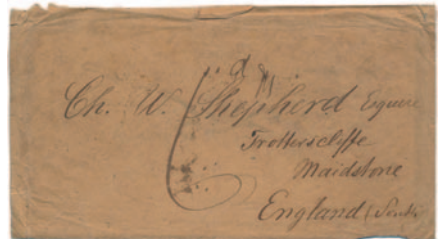 Ch. W. Shepherd Esquire
Trotterscliffe
Maidstone
England (South)